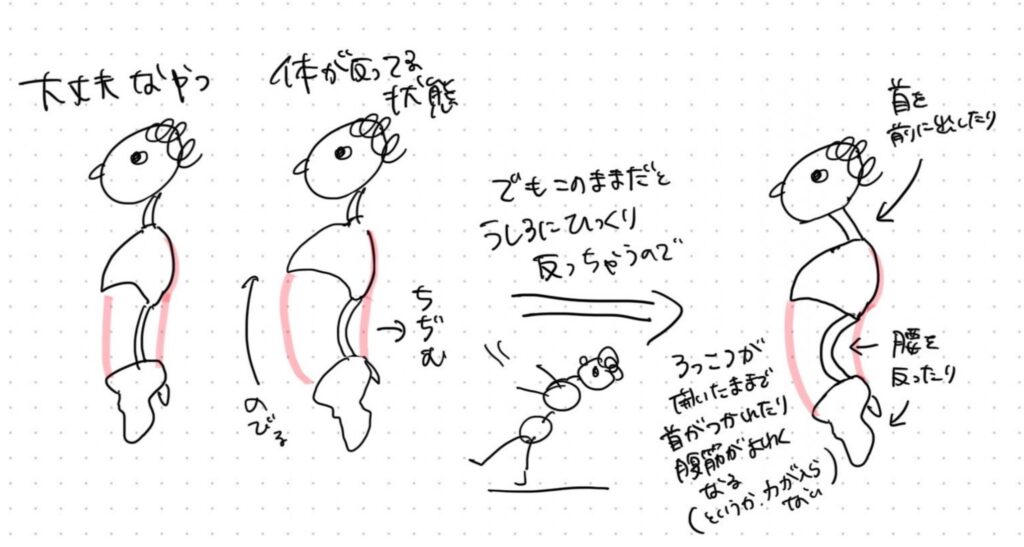 大丈夫なやつ
体が反ってる
状態
のびる
ちぢむ
でもこのままだと
うしろにひっくり
反っちゃうので
首を
前に出したり
腰を
反ったり
ろっこつが
開いたままで
首がつかれたり
腹筋がよわく
なる
(というか、力が入ら
ない)